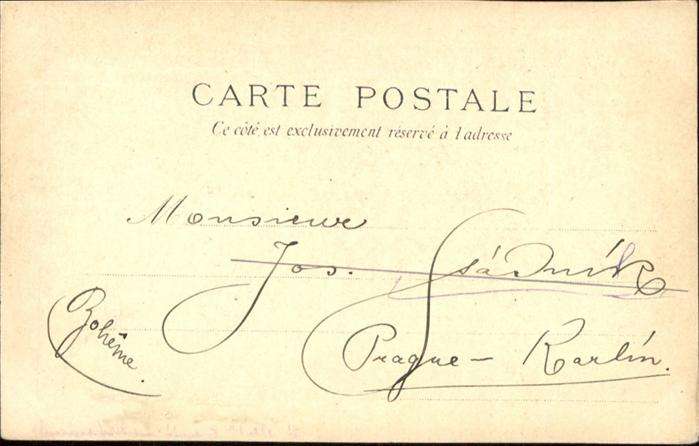 CARTE POSTALE
Ce côté est exclusivement réservé à l'adresse
Monsieur
Jos.
Bohême.
Prague – Karlín.